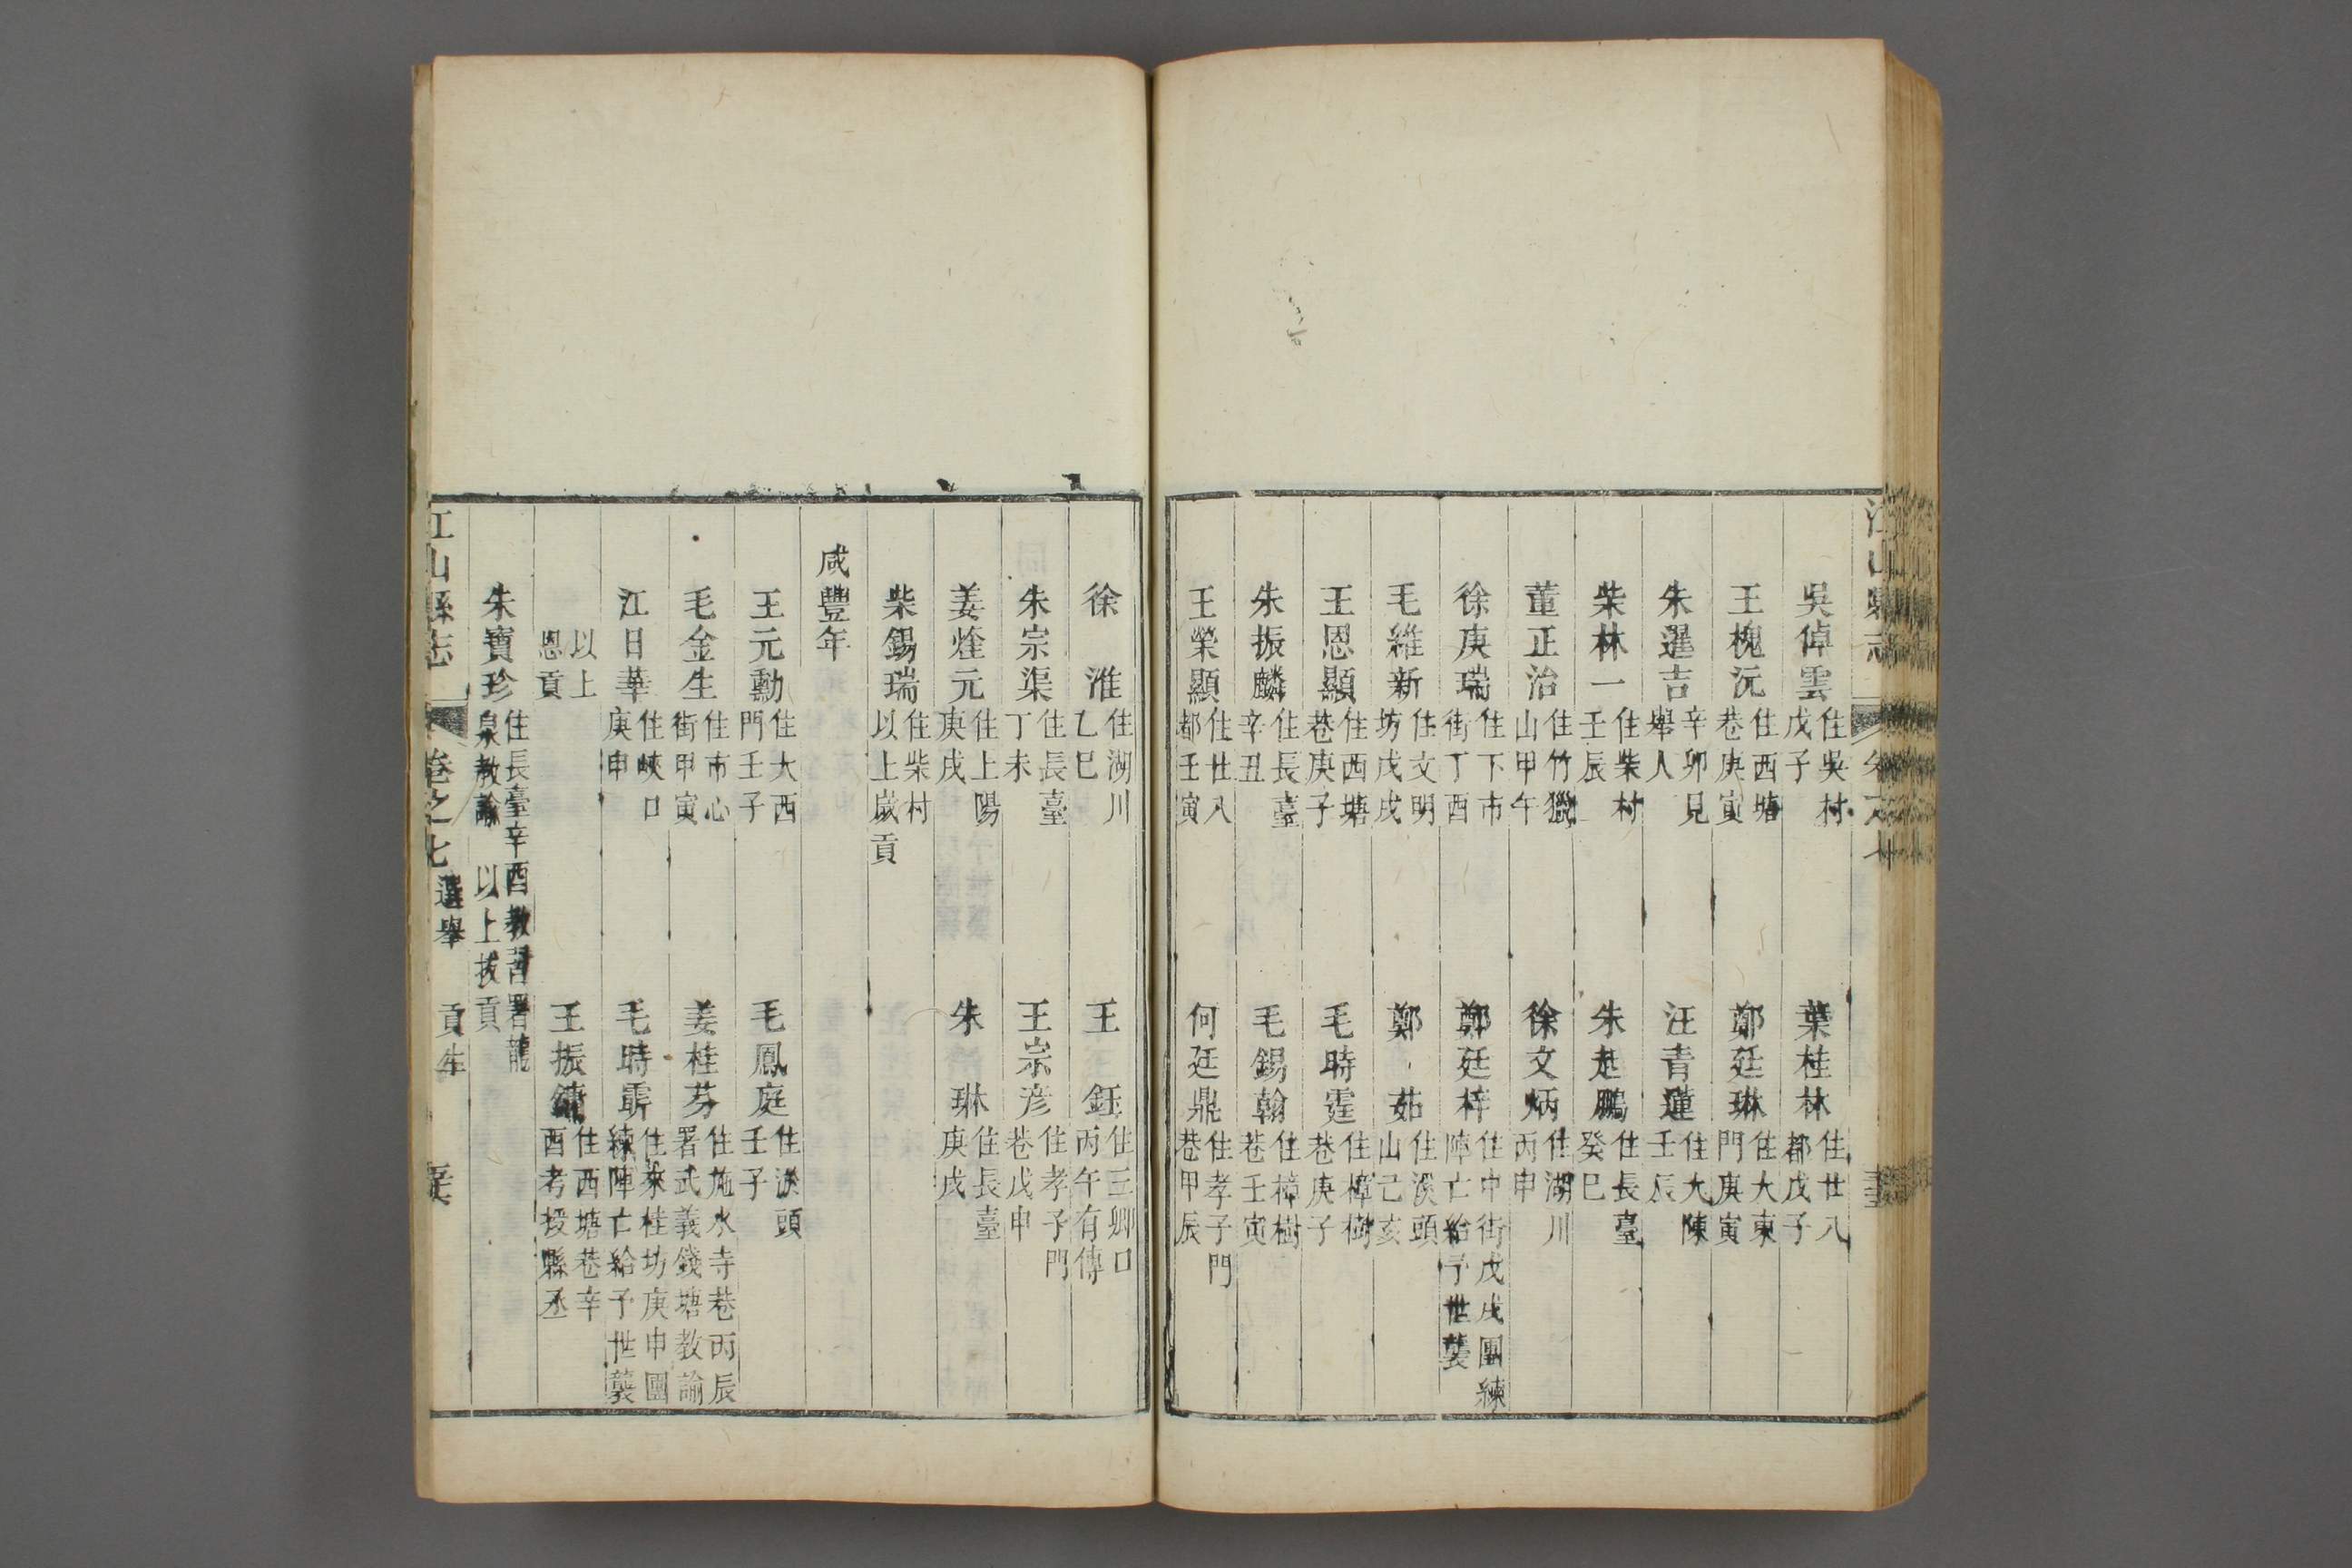 吳倬雲 住吳村戊子 葉桂林 住廿八都戊子
王槐沅 住西塘巷庚寅 鄭廷琳 住大東門庚寅
朱暹吉 辛卯見舉人 汪青蓮 住大陳壬辰
柴林一 住柴村壬辰 朱起鵬 住長臺癸巳
董正治 住竹獵山甲午 徐文炳 住湖川丙申
徐庚瑞 住下市街丁酉 鄭廷梓 住中街戊戌團練陣亡給予世襲
毛維新 住文明坊戊戌 鄭茹 住淤頭山己亥
王恩顯 住西塘巷庚子 毛時霆 住樟樹巷庚子
朱振麟 住長臺辛丑 毛錫翰 住樟樹巷壬寅
王榮顯 住廿八都壬寅 何廷鼎 住孝子門巷甲辰
徐淮 住湖川乙巳 王鈺 住三卿口丙午有傳
朱宗渠 住長臺丁未 王宗彥 住孝子門巷戊申
姜烇元 住上陽庚戌 朱琳 住長臺庚戌
柴錫瑞 住柴村以上歲貢
咸豐年
王元勳 住大西門壬子 毛鳳庭 住淤頭壬子
毛金生 住市心街甲寅 姜桂芬 住施水寺巷丙辰署武義錢塘教諭
江日華 住峽口庚申 毛時霏 住來桂坊庚申團練陣亡給予世襲
以上恩貢 王振鏞 住西塘巷辛酉考授縣丞
朱寶珍 住長臺辛酉教習署龍泉教諭 以上拔貢
江山縣志 卷之七 選舉 貢生